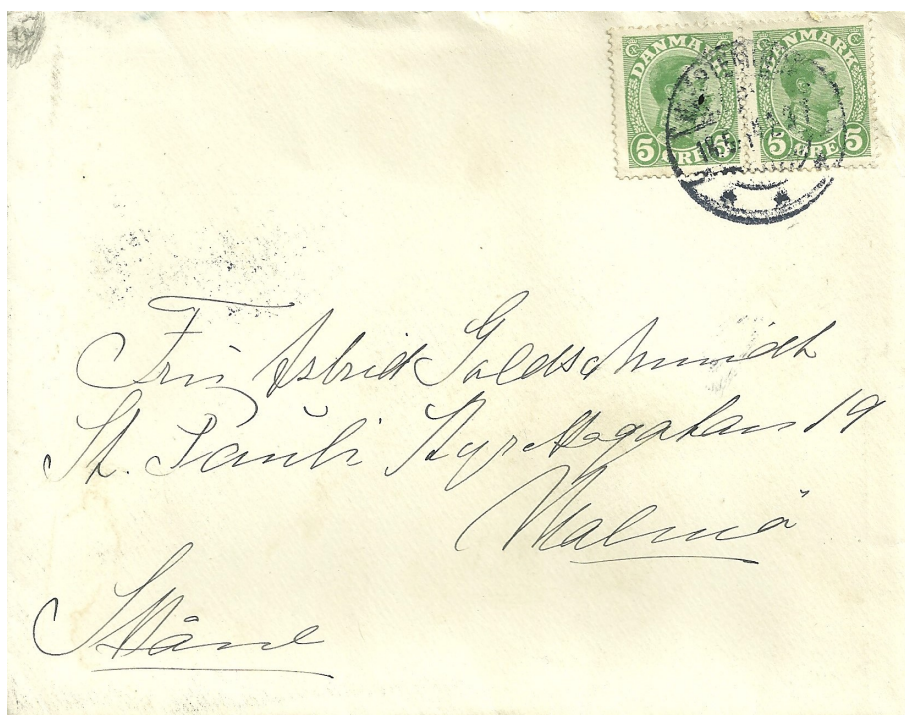 DANMARK DANMARK
5 ØRE 5 5 ØRE 5
Fru Astrid Goldschmidt
St. Pauli Kyrkogatan 19
Malmö
Skåne